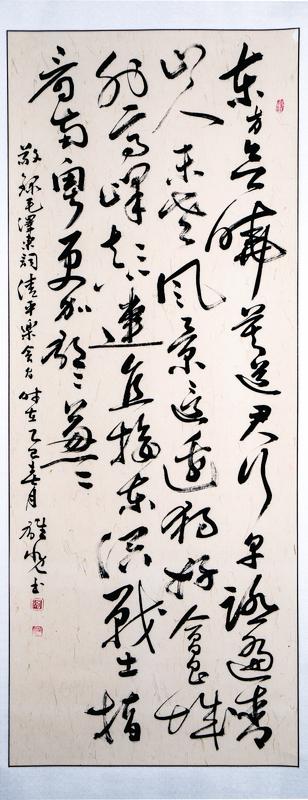 东方欲曉莫道君行早踏遍青
山人未老风景这边独好會昌城
外高峰颠连直接东溟戰士指
看南粤更加郁〻葱〻
敬录毛澤东詞清平樂會昌 时在乙巳春月 书